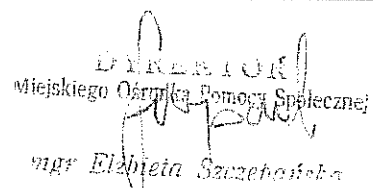 DYREKTOR
Miejskiego Ośrodka Pomocy Społecznej
mgr Elżbieta